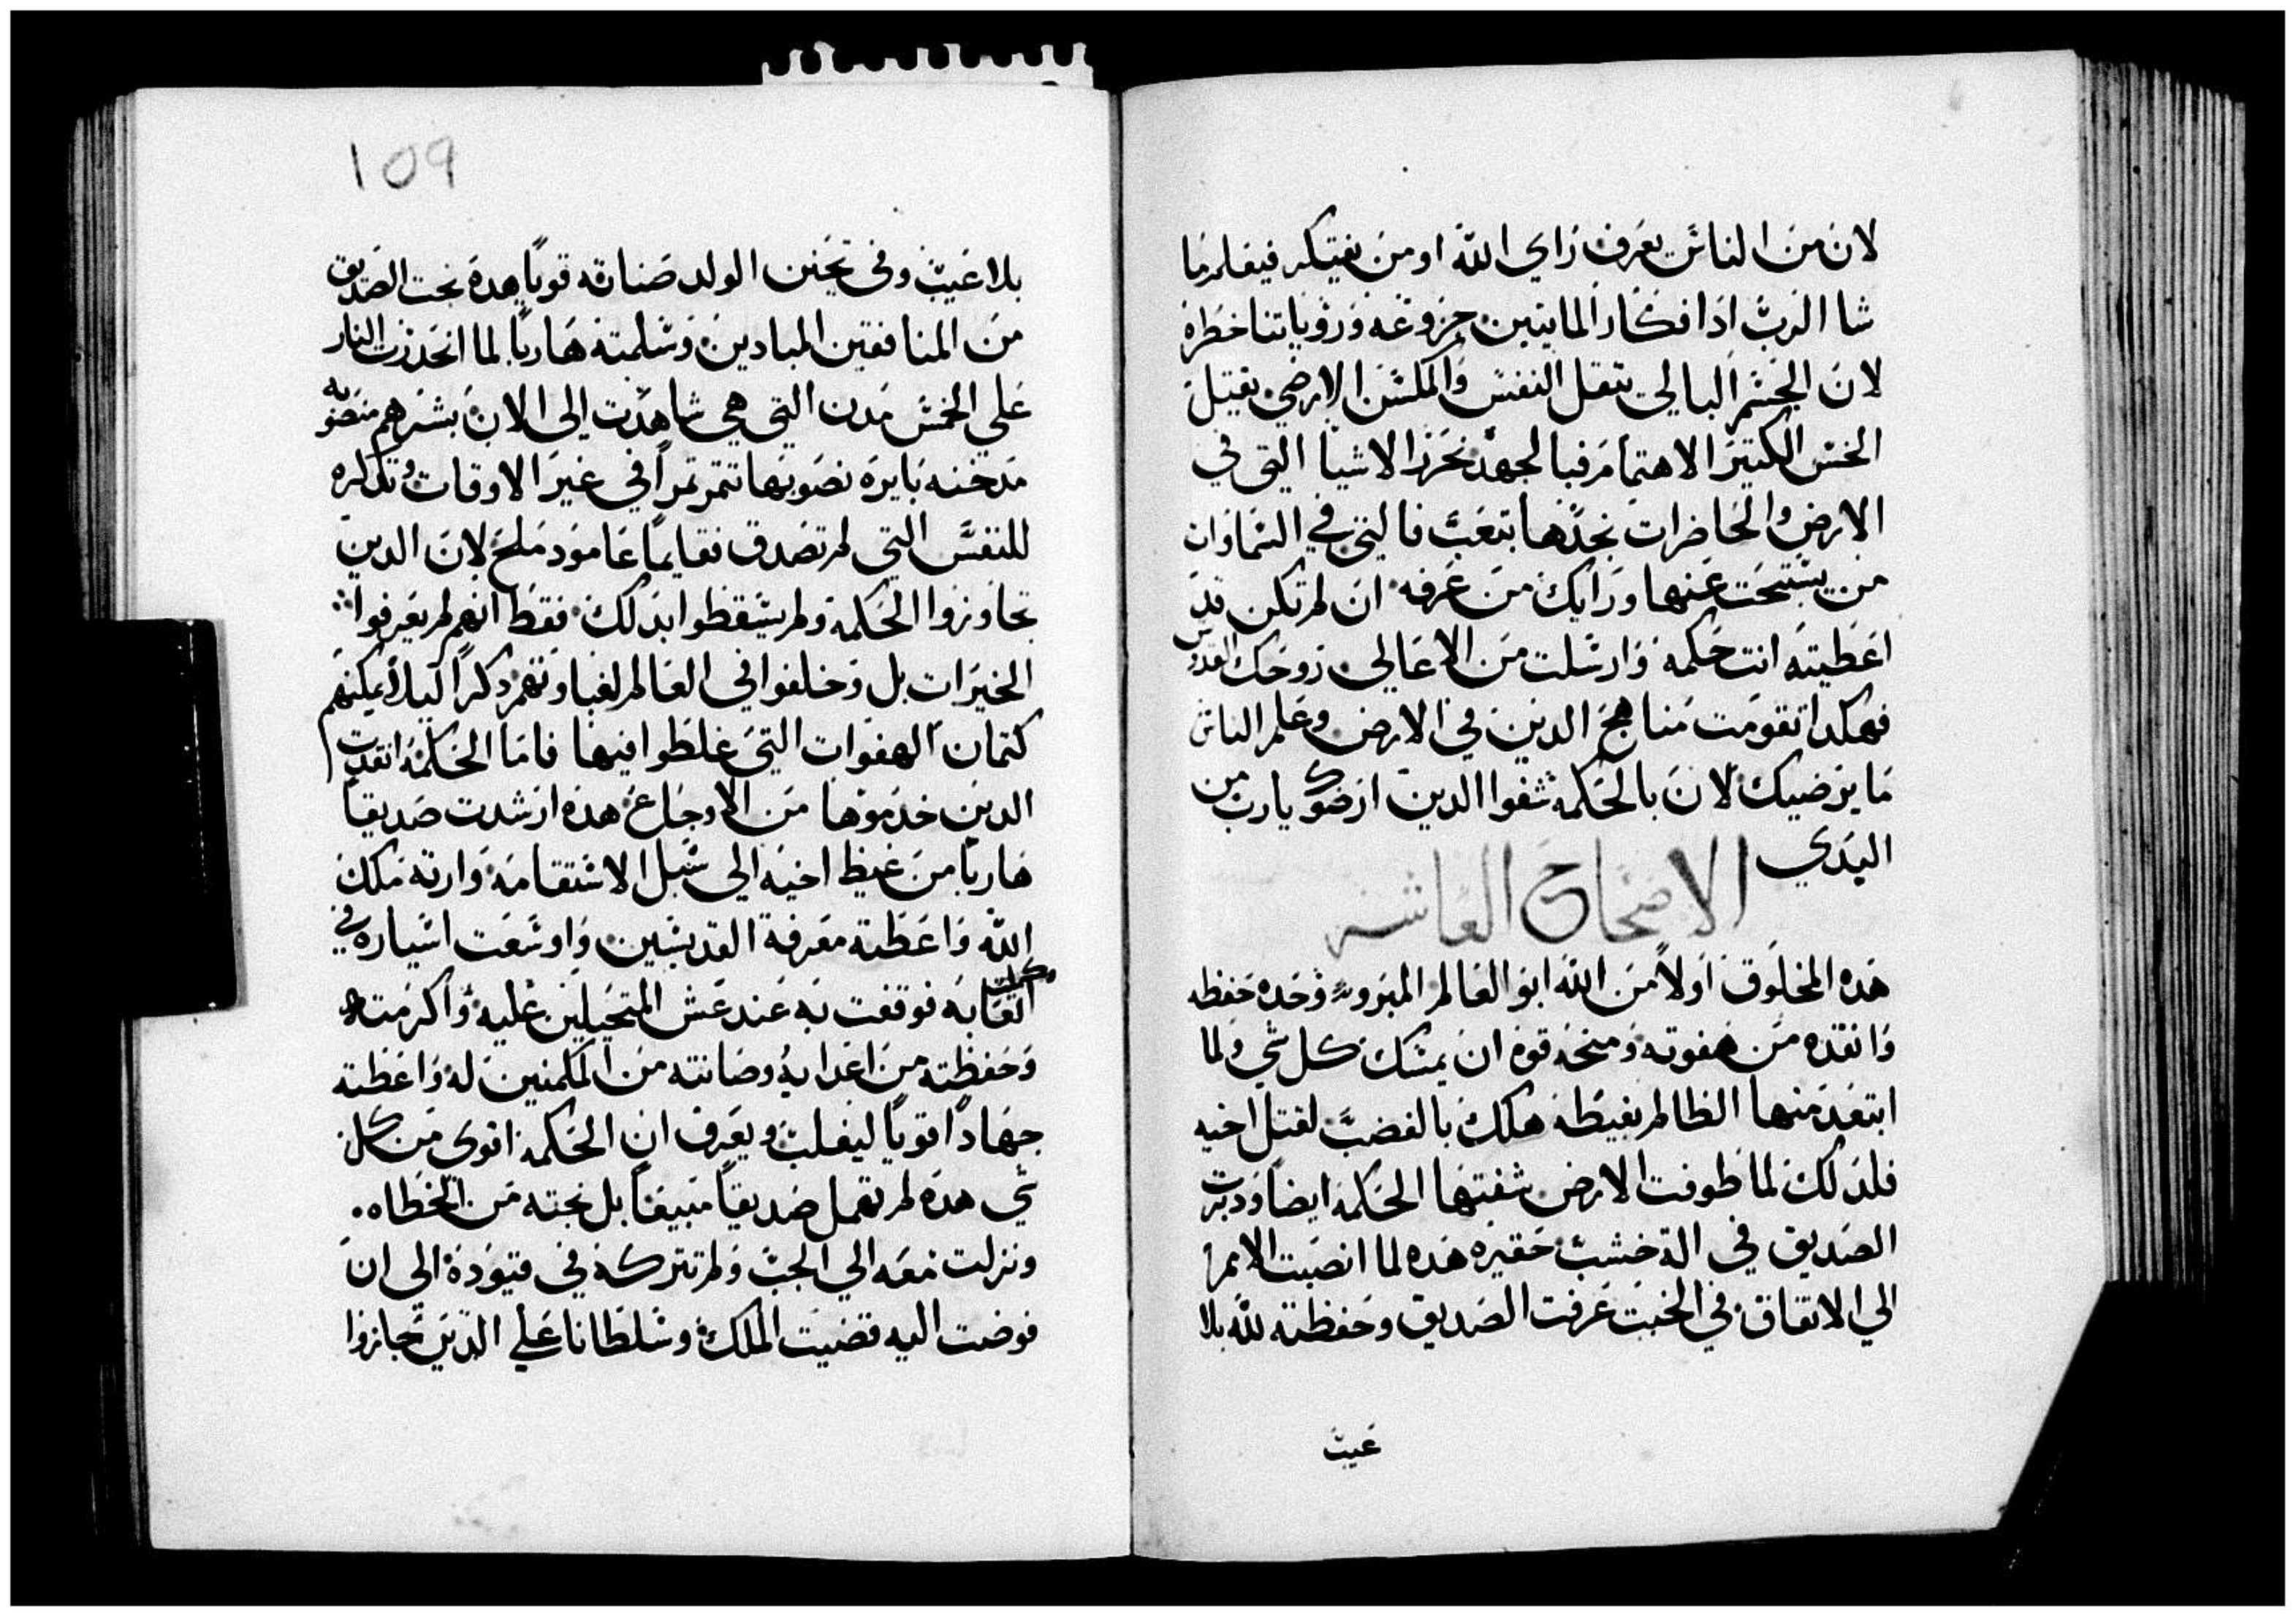 لان من الناس يعرف راي الله او من يفتكر فيعلم ما
شا الرب اذ افكار المايتين جزوعه ورؤياتنا خطره
لان الجسم البالي يتقل النفس والمسكن الارضي يقتل
الحس الكتير الاهتمام فبالجهد نحرز الاشيا التي في
الارض والحاضرات نجدها بتعب فالتي في السماوات
من يستبحت عنها ورايك من عرفه ان لم تكن قد
اعطيته انت حكمه وارسلت من الاعالي روحك القدوس
فهكدا تقومت مناهج الدين في الارض وعلم الناس
ما يرضيك لان بالحكمه شفوا الدين ارضوك يارب من
البدي
الاصحاح العاشر
هده المخلوق اولاً من الله ابو العالم المبرو وحده حفظه
وانقده من هفوته ومنحه قوة ان يمسك كل شي ولما
ابتعد منها الظالم بغيظه هلك بالغضب لقتل اخيه
فلدلك لما طوفت الارض شفتها الحكمه ايضاً ودبرت
الصديق في الة خشب حقيره هده لما انصبت الامم
الي الاتفاق في الخبت عرفت الصديق وحفظته لله بلا
عيب
109
بلا عيب وفي تحنن الولد صناته قوياً هده نجت الصديق
من المنافقين المبادين وسلمته هارباً لما انحدرت النار
علي الخمس مدن التي هي شاهدت الي الان بشرهم منصوبه
مدخنه بايره نصوبها تتمر تمراً في غير الاوقات وتدكره
للنفس التي لم تصدق فقايماً عامود ملح لان الدين
تجاوزوا الحكمه ولم يسقطوا بدلك فقط انهم لم يعرفوا
الخيرات بل وخلفوا في العالم لغباوتهم دكراً ليلا يمكنهم
كتمان الهفوات التي غلطوا فيها فاما الحكمه انقدت
الدين خدموها من الاوجاع هده ارشدت صديقاً
هارباً من غيظ اخيه الي سبل الاستقامه وارته ملك
الله واعطته معرفة القديسين واوسعت اسياره في
وكملت
اتعابه فوقفت به عند غش المتحيلين عليه واكرمته
وحفظته من اعدايه وصانته من المكمنين له واعطته
جهاداً قوياً ليغلب ويعرف ان الحكمه اقوى من كل
شي هده لم تهمل صديقاً مبيعاً بل نجته من الخطاه
ونزلت معه الي الجب ولم تتركه في قيوده الي ان
فوضت اليه قضيت الملك وسلطانا علي الدين تجازوا